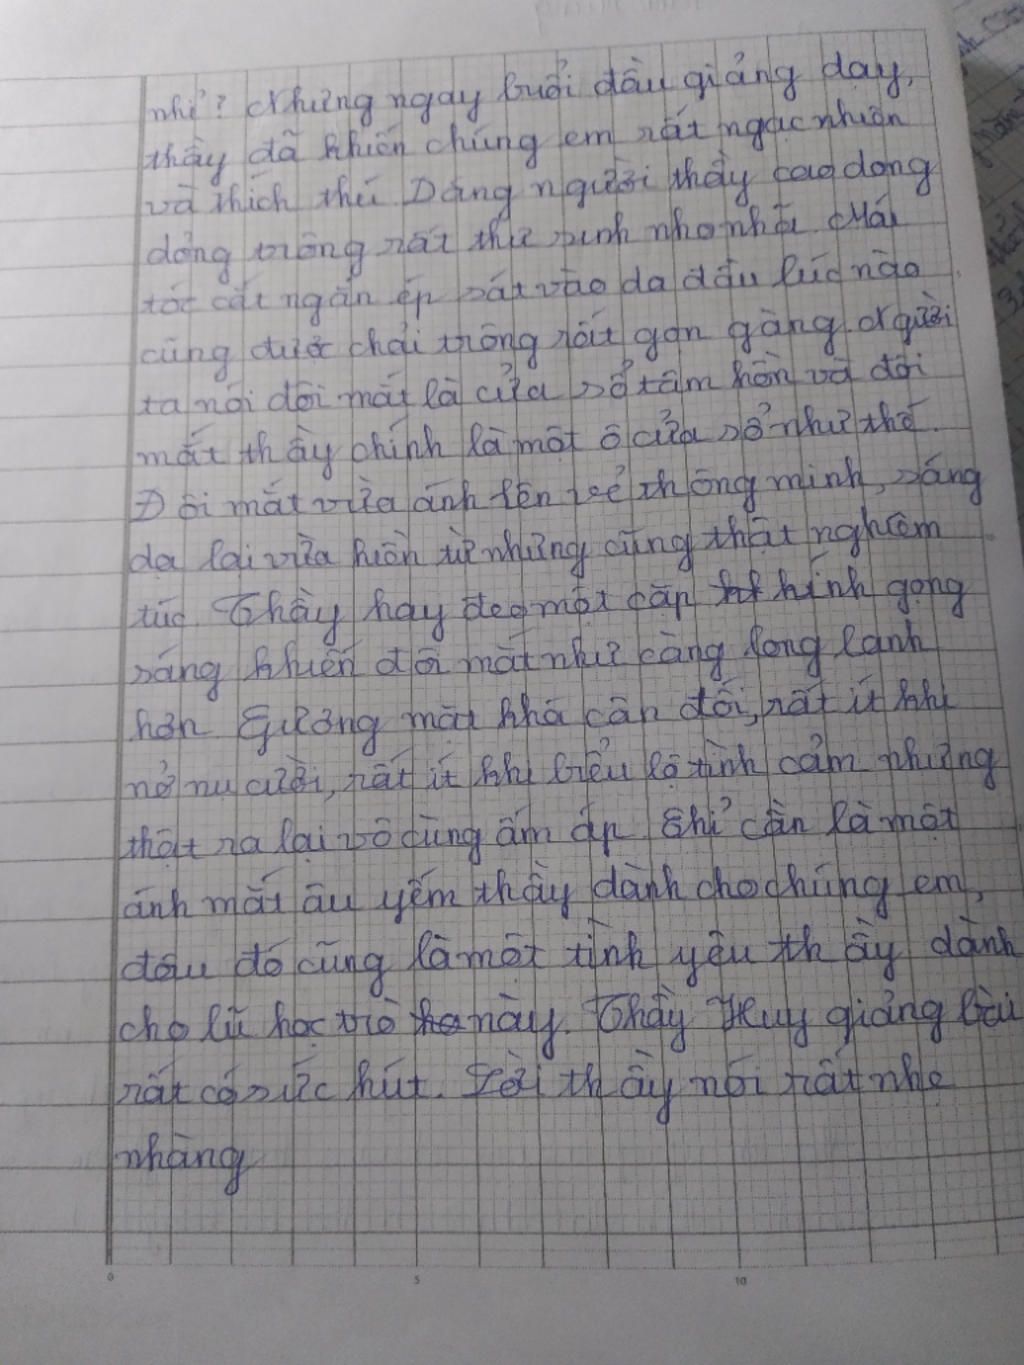 nhỉ? Nhưng ngay buổi đầu giảng dạy,
thầy đã khiến chúng em rất ngạc nhiên
và thích thú Dáng người thầy cao dong
dỏng trông rất thư sinh nho nhã. Mái
tóc cắt ngắn ép sát vào da đầu lúc nào
cũng được chải trông rất gọn gàng. Người
ta nói đôi mắt là cửa sổ tâm hồn và đôi
mắt thầy chính là một ô cửa sổ như thế.
Đôi mắt vừa ánh lên vẻ thông minh, sáng
dạ lại vừa hiền từ nhưng cũng thật nghiêm
túc. Thầy hay đeo một cặp kính gọng
sáng khiến đôi mắt như càng long lanh
hơn Gương mặt khá cân đối, rất ít khi
nở nụ cười, rất ít khi biểu lộ tình cảm nhưng
thật ra lại vô cùng ấm áp Chỉ cần là một
ánh mắt âu yếm thầy dành cho chúng em,
đâu đó cũng là một tình yêu thầy dành
cho lũ học trò này. Thầy Huy giảng bài
rất có sức hút. Lời thầy nói rất nhẹ
nhàng